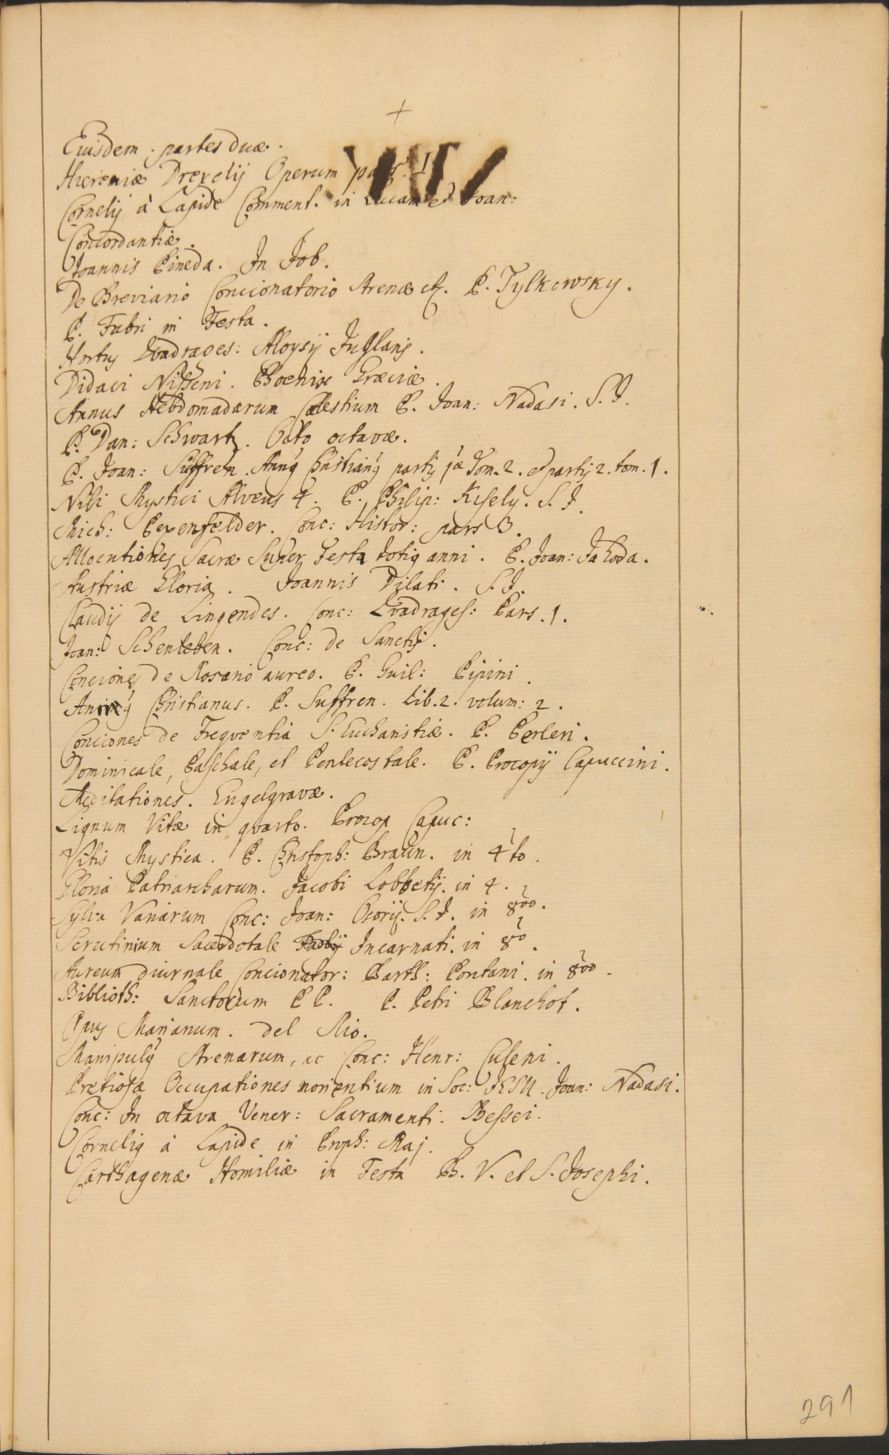 +
Eiusdem partes duæ.
Hieremiæ Drexelij Operum pars. 1
Cornelij à Lapide Comment. in Lucam et Joan:
Concordantiæ.
Joannis Pineda. In Job.
De Breviario Concionatorio Arenæ &. P. Tylkowsky.
P. Fabri in Festa.
Hortus Quadrages: Aloysij Juglaris.
Didaci Nisseni. Phoenix Græciæ.
Annus Hebdomadarum Cælestium P. Joan: Nadasi. S. J.
P. Dan: Schwartz. Octo octavæ.
P. Joan: Suffren. Annus Christianus partis 1æ Tom. 2. et partis 2. tom. 1.
Nili Mystici Alveus 4. P. Philip: Kisely. S. J.
Mich: Pexenfelder. Conc: Histor: pars 3.
Allocutiones Sacræ Super Festa totius anni. P. Joan: Tahoda.
Austriæ Gloria. Joannis Dilati. S. J.
Claudij de Lingendes. Conc: Quadrages: Pars. 1.
Joan: Schenleben. Conc: de Sanctis.
Conciones de Rosario aureo. P. Guil: Pipini.
Annus Christianus. P. Suffren. Lib. 2. volum: 2.
Conciones de Frequentia S. Eucharistiæ. P. Perleri.
Dominicale, Paschale, et Pentecostale. P. Procopij Capuccini.
Meditationes. Engelgravæ.
Lignum Vitæ in quarto. Procop Capuc:
Vitis Mystica. P. Christoph: Braun. in 4to.
Gloria Patriarcharum. Jacobi Lobbetij. in 4.
Sylva Variarum Conc: Joan: Osorij. S. J. in 8vo.
Scrutinium Sacerdotale Incarnati. in 8vo.
Aureum diurnale Concionator: Barth: Pontani. in 8vo.
Biblioth: Sanctorum PP. P. Petri Blanchot.
Opus Marianum. del Rio.
Manipulus Arenarum, ac Conc: Henr: Culeni.
Pretiosæ Occupationes morientium in Soc: JESU. Joan: Nadasi.
Conc: In octava Vener: Sacramenti. Bessei.
Cornelius à Lapide in Proph: Maj.
Carthagenæ Homiliæ in Festa B. V. et S. Josephi.
291